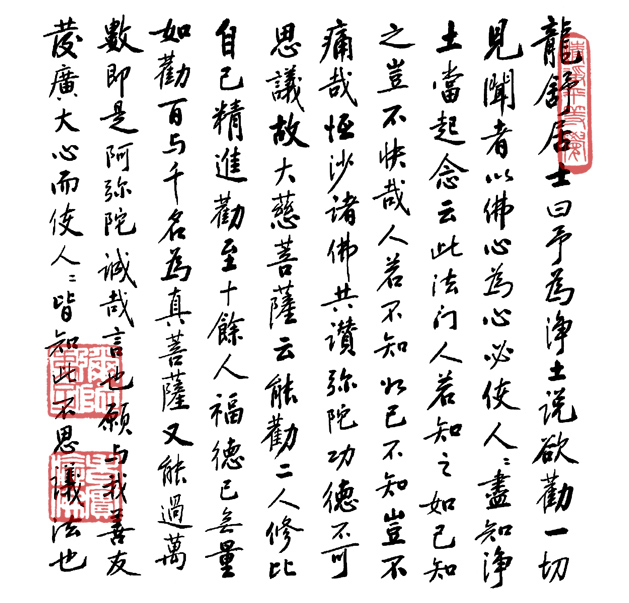 龍舒居士曰予為淨土说欲勸一切
見聞者以佛心為心必使人〻盡知淨
土當起念云此法门人若知之如己知
之豈不快哉人若不知如己不知豈不
痛哉恆沙諸佛共讚弥陀功德不可
思議故大慈菩薩云能勸二人修比
自己精進勸至十餘人福德已無量
如勸百与千名為真菩薩又能過萬
數即是阿弥陀誠哉言也願与我善友
發廣大心而使人〻皆知此不思議法也